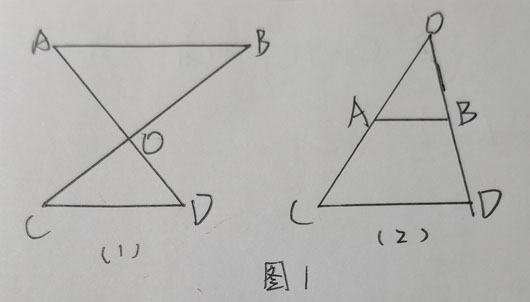 A B
O
C D
(1)
O
A B
C D
(2)
图1